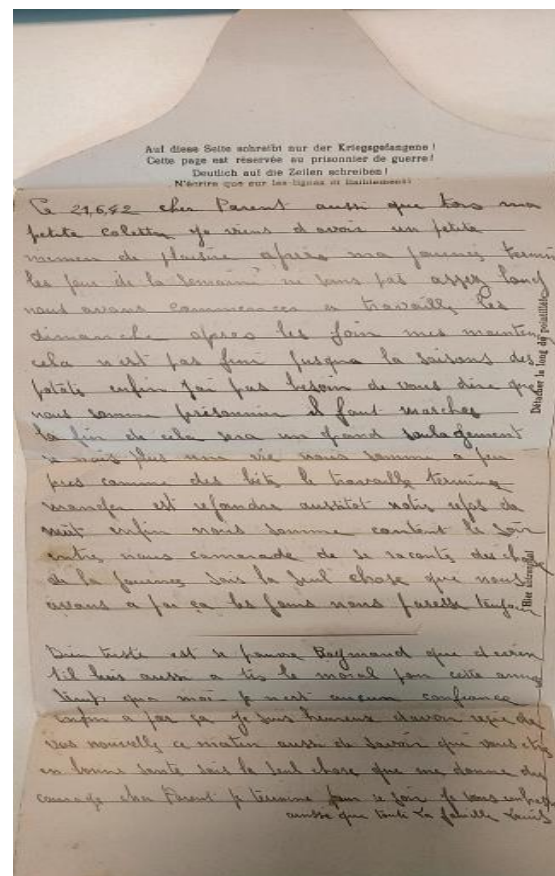 Auf diese Seite schreibt nur der Kriegsgefangene!
Cette page est réservée au prisonnier de guerre!
Deutlich auf die Zeilen schreiben!
N'écrire que sur les lignes et lisiblement!
Le 21,6,42 cher Parent aussi que tois ma
petite colette je viens d avoir un petite
momen de plaisire après ma journes termin
les jour de la semaine ne sons pas assez long
nous avons commences a travaille les
dimanche apres les foin mes maintena
cela n est pas fini jusqua la saisons des
patates enfin jai pas besoin de vous dire que
nous somme prisonnie il faut marcher
la fin de cela sera un grand soulagement
se nais plus une vie nous somme a peu
pres comme des bête le travaille termine
manger est refaudre aussitot notre repas de
nuit enfin nous somme content le soir
entre nous camarade de se raconte des chose
de la journes sais la seul chose que nous
avons a par ça les jours nous paresse toujour
bien triste est se pauvre Raymond que
til lui aussi a tes le moral pour cette anne
temp qua moi je n est aucun confiance
enfin a par ça je suis heureux davoir reçu de
vos nouvelle ce matin aussi de savoir que vous ete
en bonne sante sais la seul chose que me donne du
courage cher Parent je termine pour ce soir je vous embrasse
aussie que toute La famille Louis
Détacher le long du pointillé!
Hier